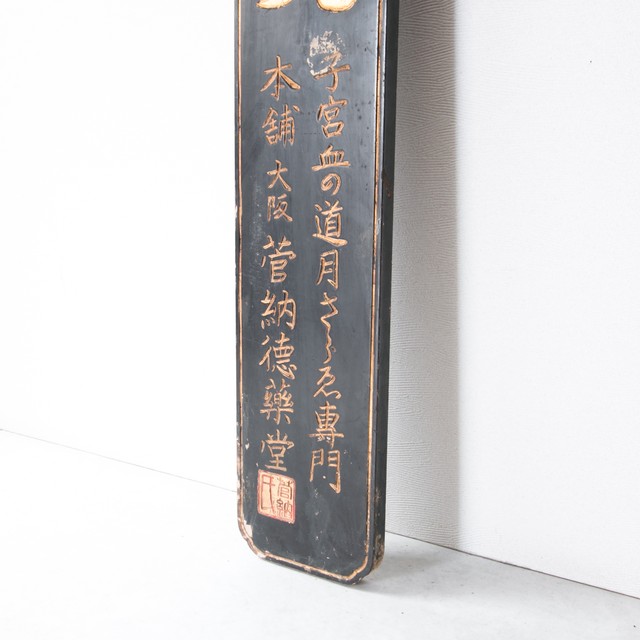 子宮血の道月さらゑ專門
本舗 大阪 菅納德藥堂
菅納氏